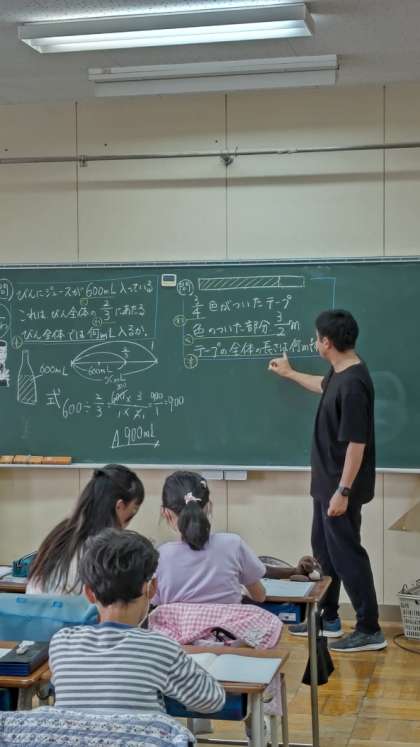 問 びんにジュースが600mL入っている
これは びん全体の 2/3 にあたる
びん全体では 何mL入るか。
600mL
600mL
1
2/3
xmL
式 600÷2/3=600×3/1×2=900/1=900
A 900mL
問
3/4 色がついたテープ
色のついた部分 3/2m
テープの全体の長さは何m